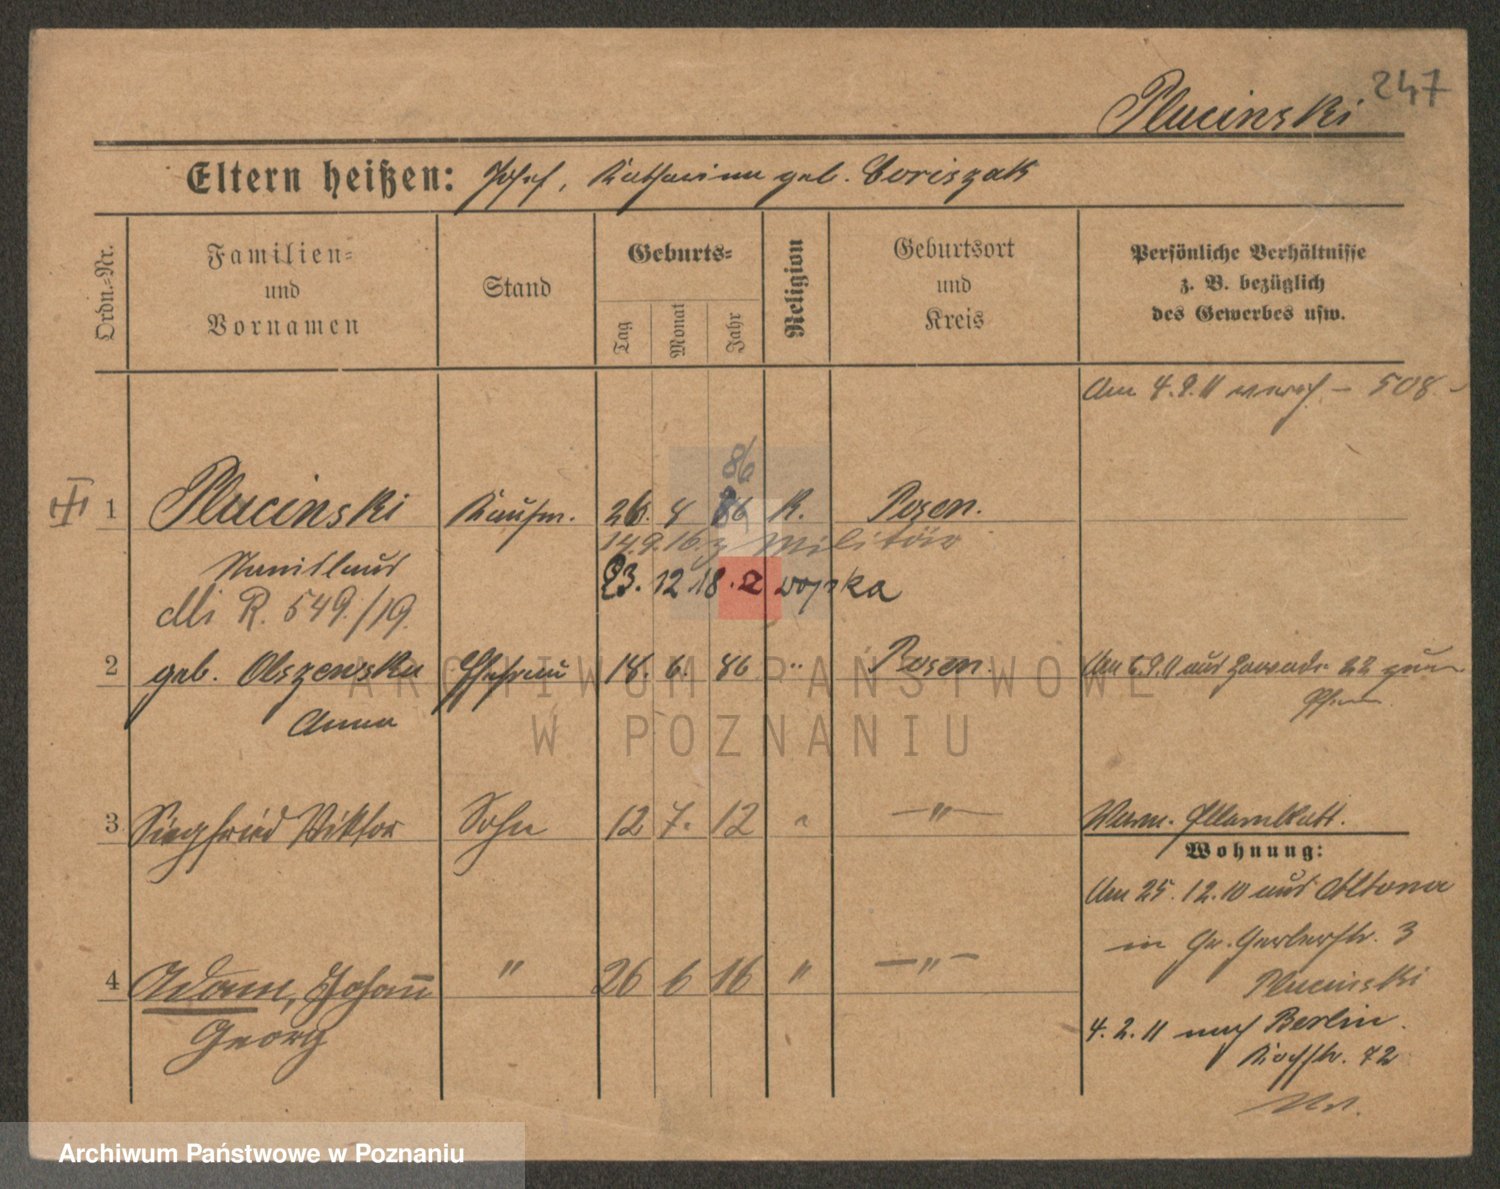 247
Plucinski
Eltern heißen: Josef, Katharina geb. Coriszak
Ordn.-Nr.
Familien- und Vornamen
Stand
Geburts-
Tag
Monat
Jahr
Religion
Geburtsort und Kreis
Persönliche Verhältnisse z. B. bezüglich des Gewerbes usw.
Am 4.9.11 - 508.-
86
1 Plucinski Kaufm. 26. 4 86 K. Posen.
14.9.16. z Militär
Stanislaus
23. 12 18. z wojska
R. 549./19.
2 geb. Olszewska Ehefrau 18. 6. 86 " Posen. Am 5.9.11 aus 22 zum
Anna
3 Siegfried Viktor Sohn 12 7. 12 " —"—
Wohnung:
Am 25.12.10 aus Altona
in Gr. Gerberstr. 3
4 Adam, Johann " 26 6 16 " —"—
Plucinski
Georg
4.2.11 nach Berlin.
Kochstr. 72
ARCHIWUM PAŃSTWOWE
W POZNANIU
Archiwum Państwowe w Poznaniu